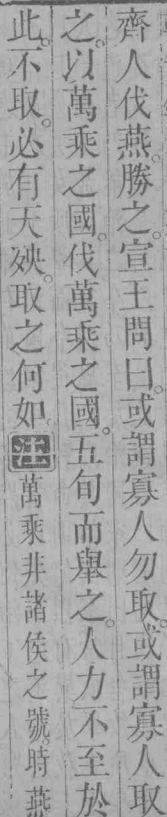 齊人伐燕。勝之。宣王問曰。或謂寡人勿取。或謂寡人取
之。以萬乘之國。伐萬乘之國。五旬而舉之。人力不至於
此。不取。必有天殃。取之何如。注萬乘非諸侯之號。時燕